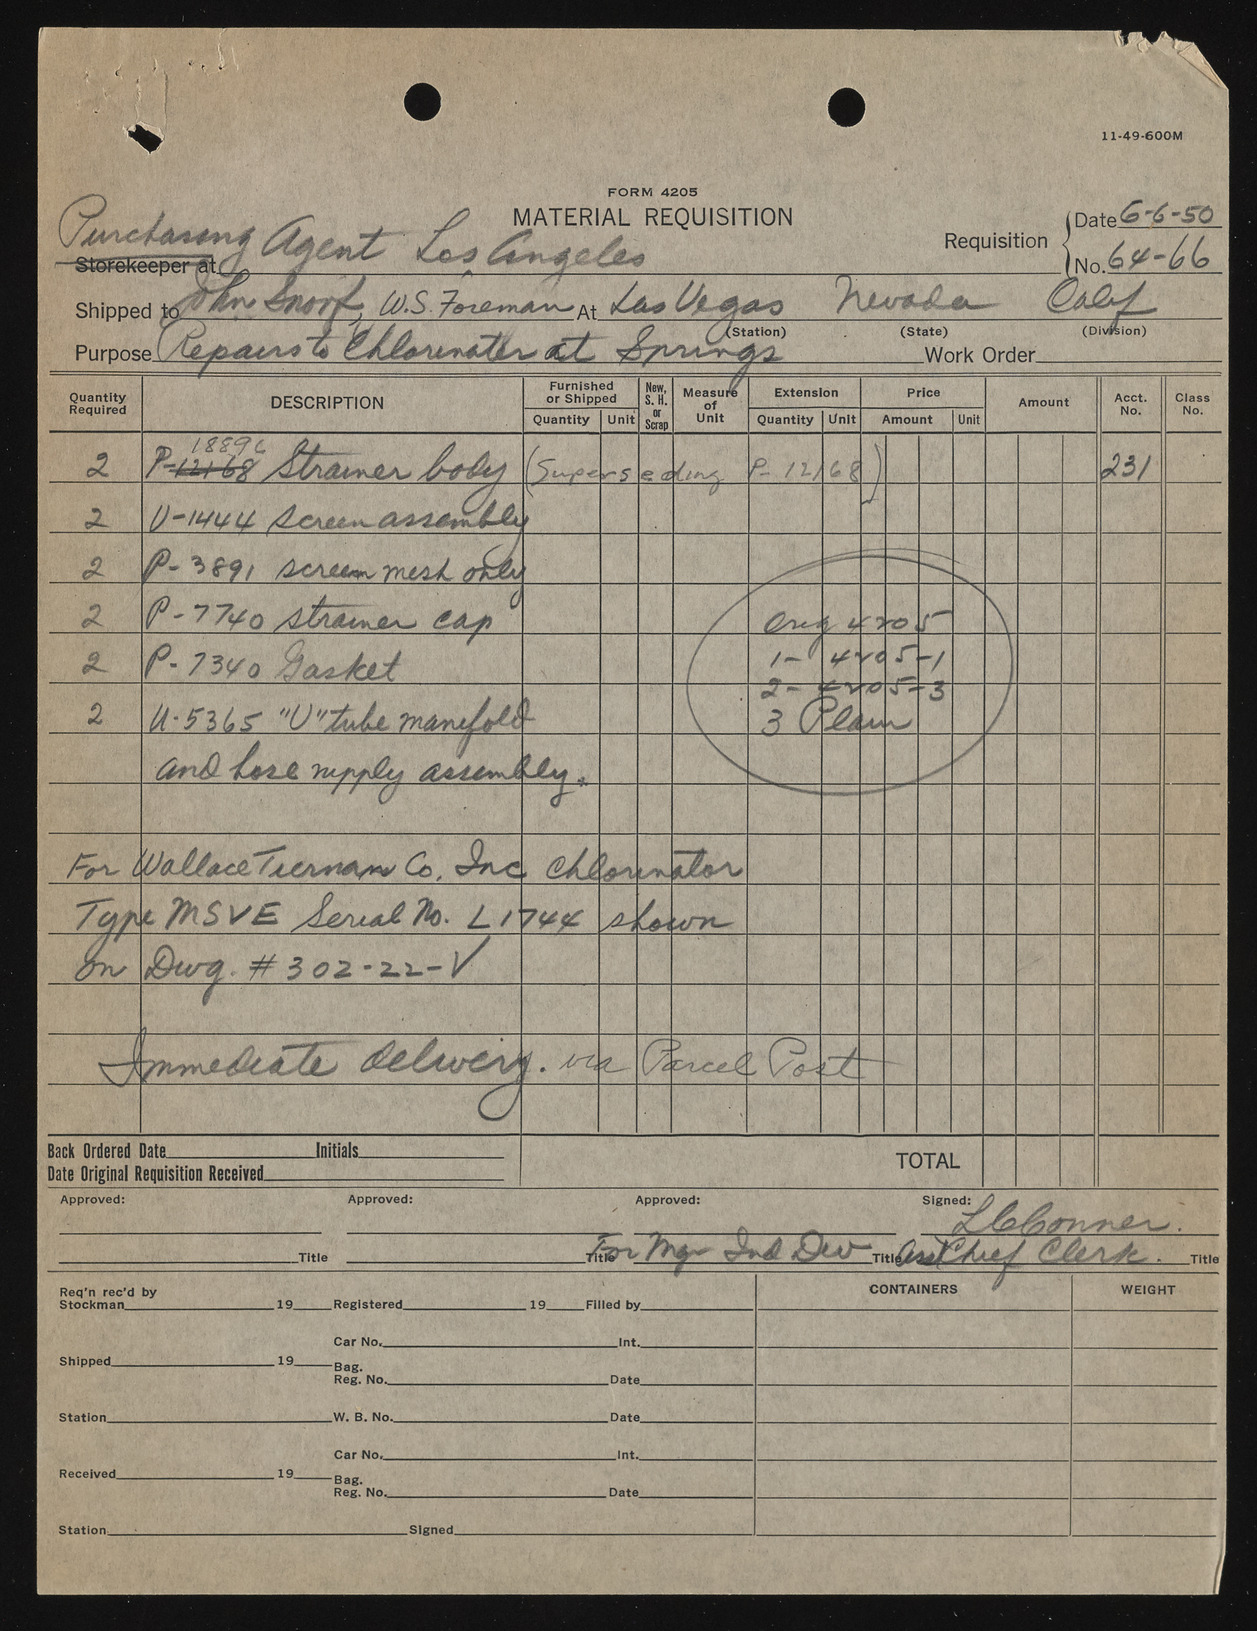 11-49-600M
FORM 4205
MATERIAL REQUISITION
Purchasing Agent Los Angeles
Storekeeper at
Requisition
Date 6-6-50
No. 64-66
Shipped to John Snorf, W.S. Foreman At Las Vegas Nevada Calif
(Station) (State) (Division)
Purpose Repairs to Chlorinater at Springs Work Order
Quantity Required DESCRIPTION Furnished or Shipped Quantity Unit New, S. H. or Scrap Measure of Unit Extension Quantity Unit Price Amount Unit Amount Acct. No. Class No.
18896
2 P-12168 Strainer body (Superseding P-12168) 231
2 U-1444 screen assembly
2 P-3891 screen mesh only
2 P-7740 strainer cap
2 P-7340 Gasket
2 U-5365 "U" tube manifold
and hose supply assembly.
Orig 4205
1- 4205-1
2- 4205-3
3 Plain
For Wallace Tiernan Co. Inc Chlorinator
Type MSVE Serial No. L1744 shown
on Dwg. #302-22-V
Immediate delivery. via Parcel Post
Back Ordered Date Initials
Date Original Requisition Received
TOTAL
Approved: Approved: Approved: Signed: L C Conner.
Title Title For Mgr Ind Dev Title Asst Chief Clerk. Title
Req'n rec'd by
Stockman 19 Registered 19 Filled by
CONTAINERS WEIGHT
Car No. Int.
Shipped 19 Bag.
Reg. No. Date
Station W. B. No. Date
Car No. Int.
Received 19 Bag.
Reg. No. Date
Station Signed